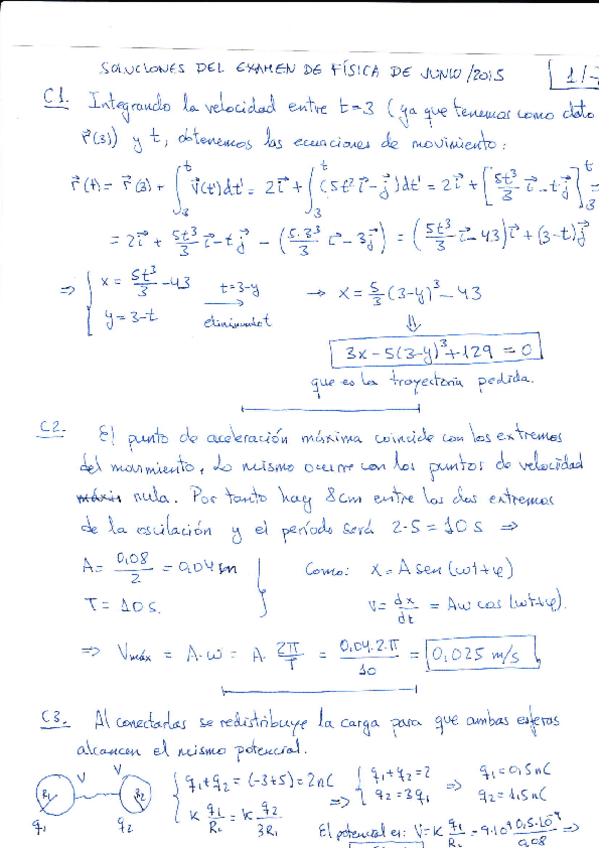 SOLUCIONES DEL EXAMEN DE FÍSICA DE JUNIO/2015 1/
C1. Integrando la velocidad entre t=3 (ya que tenemos como dato
r⃗(3)) y t, obtenemos las ecuaciones de movimiento:
r⃗(t) = r⃗(3) + ∫₃ᵗ v⃗(t')dt' = 2i⃗ + ∫₃ᵗ (5t'² i⃗ - j⃗)dt' = 2i⃗ + [5t³/3 i⃗ - t j⃗]₃ᵗ =
= 2i⃗ + 5t³/3 i⃗ - t j⃗ - (5·3³/3 i⃗ - 3j⃗) = (5t³/3 i⃗ - 43)i⃗ + (3-t)j⃗
⇒ { x = 5t³/3 - 43 t=3-y → x = 5/3 (3-y)³ - 43
y = 3-t eliminando t ⇓
3x - 5(3-y)³ + 129 = 0
que es la trayectoria pedida.
C2. El punto de aceleración máxima coincide con los extremos
del movimiento. Lo mismo ocurre con los puntos de velocidad
máxi nula. Por tanto hay 8cm entre los dos extremos
de la oscilación y el período será 2·5 = 10 s ⇒
A = 0,08/2 = 0,04 m Como: x = A sen(ωt+φ)
T = 10 s. v = dx/dt = Aω cos(ωt+φ).
⇒ Vmáx = A·ω = A· 2π/T = 0,04·2·π/10 = 0,025 m/s
C3. Al conectarlas se redistribuye la carga para que ambas esferas
alcancen el mismo potencial.
V V
R₁ R₂
q₁ q₂
{ q₁+q₂ = (-3+5) = 2nC ⇒ { q₁+q₂=2 ⇒ q₁=0,5nC
K q₁/R₁ = K q₂/3R₁ q₂=3q₁ q₂=1,5nC
El potencial es: V = K q₁/R₁ = 9·10⁹ 0,5·10⁻⁹/0,08 ⇒